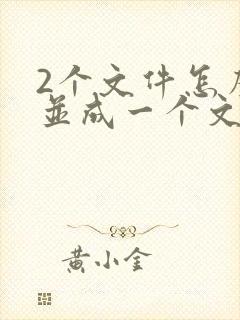 2个文件怎
並成一个文
黄小金